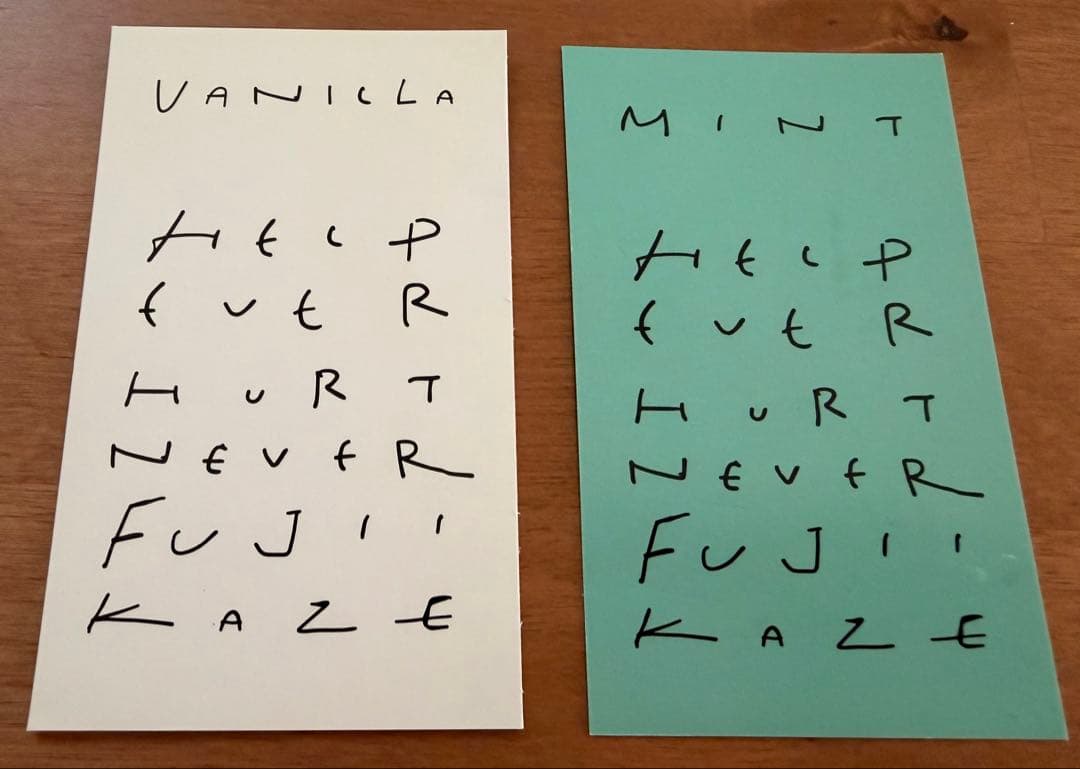 VANILLA
HELP
EVER
HURT
NEVER
FUJII
KAZE
MINT
HELP
EVER
HURT
NEVER
FUJII
KAZE